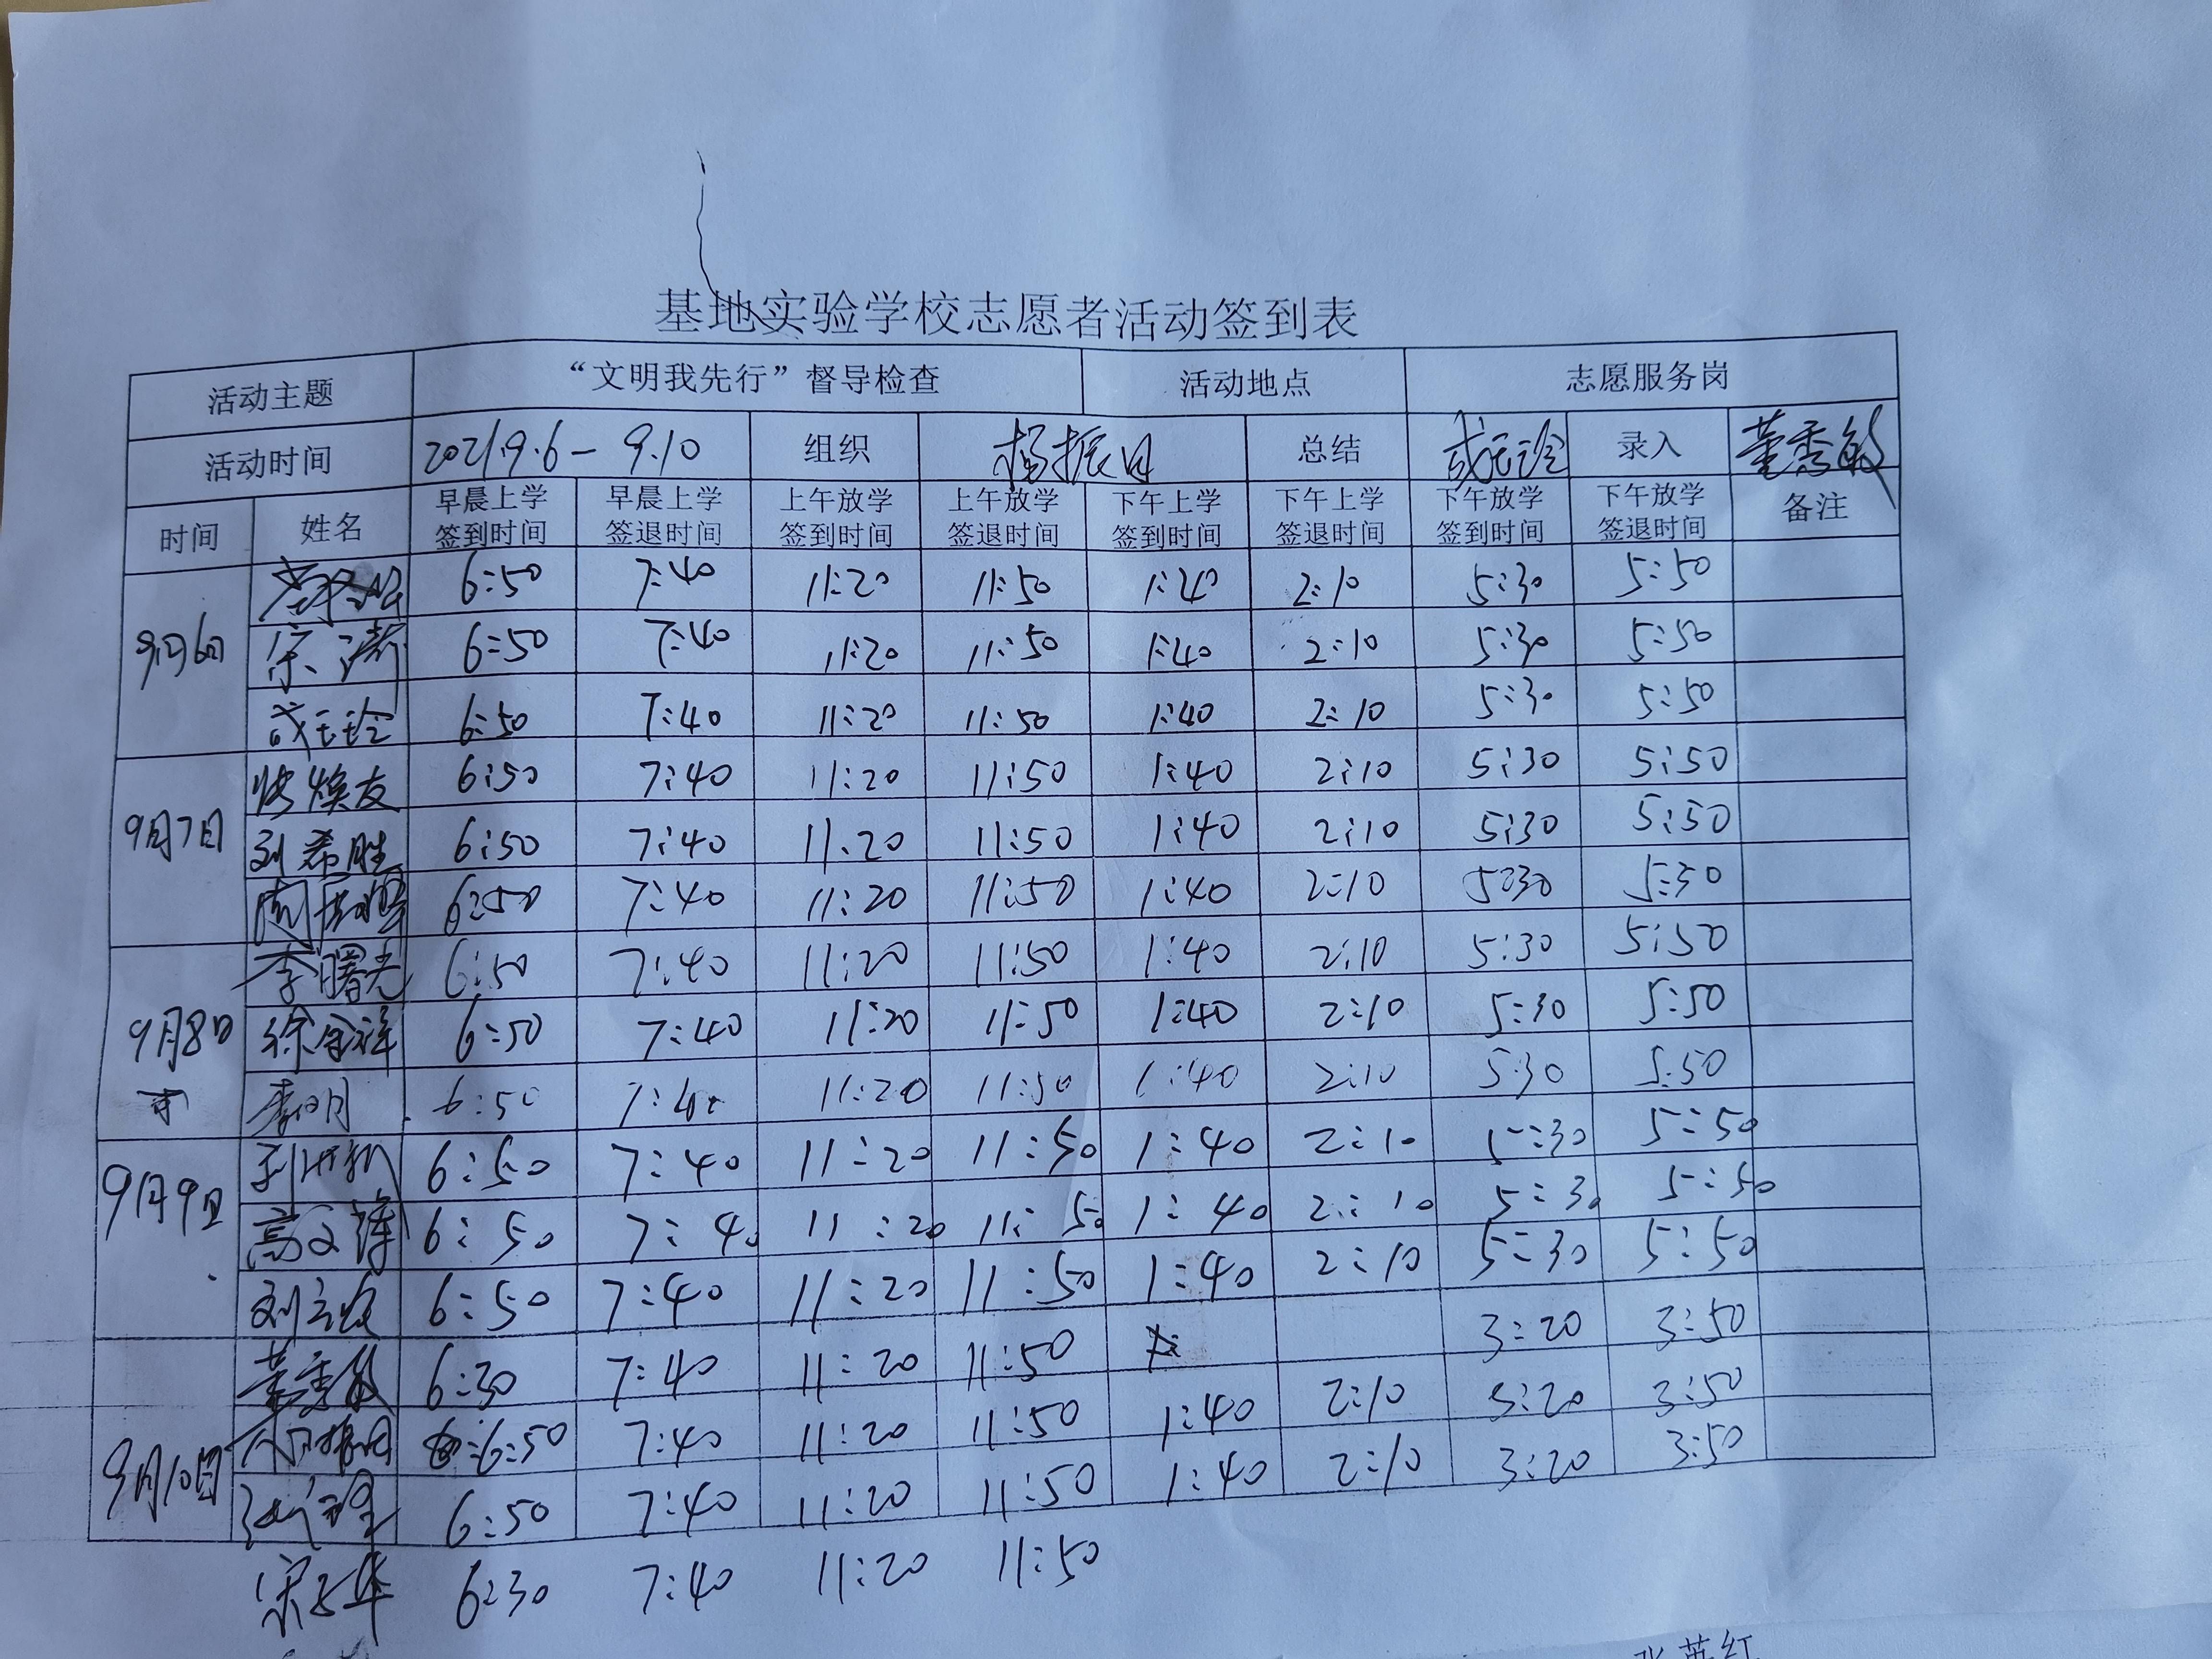 基地实验学校志愿者活动签到表
活动主题 “文明我先行”督导检查 活动地点 志愿服务岗
活动时间 2021.9.6-9.10 组织 杨振日 总结 成玉玲 录入 董秀敏
时间 姓名 早晨上学签到时间 早晨上学签退时间 上午放学签到时间 上午放学签退时间 下午上学签到时间 下午上学签退时间 下午放学签到时间 下午放学签退时间 备注
9月6日 6:50 7:40 11:20 11:50 1:40 2:10 5:30 5:50
宋涛 6:50 7:40 11:20 11:50 1:40 2:10 5:30 5:50
成玉玲 6:50 7:40 11:20 11:50 1:40 2:10 5:30 5:50
9月7日 焕友 6:50 7:40 11:20 11:50 1:40 2:10 5:30 5:50
刘希胜 6:50 7:40 11:20 11:50 1:40 2:10 5:30 5:50
6:50 7:40 11:20 11:50 1:40 2:10 5:30 5:50
9月8日 李曙光 6:50 7:40 11:20 11:50 1:40 2:10 5:30 5:50
徐金祥 6:50 7:40 11:20 11:50 1:40 2:10 5:30 5:50
李明 6:50 7:40 11:20 11:50 1:40 2:10 5:30 5:50
9月9日 6:50 7:40 11:20 11:50 1:40 2:10 5:30 5:50
高文 6:50 7:40 11:20 11:50 1:40 2:10 5:30 5:50
刘 6:50 7:40 11:20 11:50 1:40 2:10 5:30 5:50
9月10日 董秀敏 6:30 7:40 11:20 11:50 3:20 3:50
6:50 7:40 11:20 11:50 1:40 2:10 3:20 3:50
6:50 7:40 11:20 11:50 1:40 2:10 3:20 3:50
宋 华 6:30 7:40 11:20 11:50
张英红